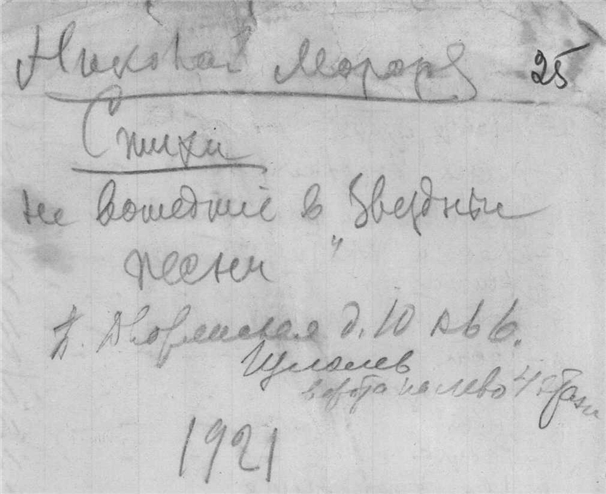 Николай Морозов 25
Стихи
не вошедшие в "Звездные
песни"
Б. Дворянская д. 10 кв 6.
Щеголев
ворота налево 4 этаж
1921